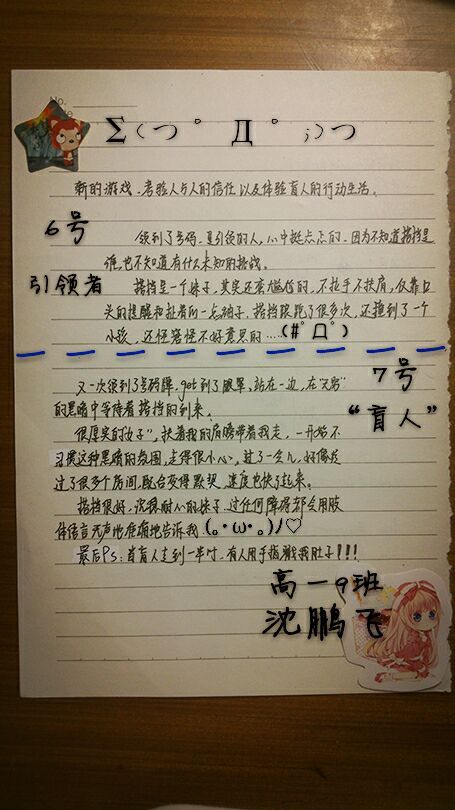 Σ(つ°Д°;)つ
新的游戏、考验人与人的信任以及体验盲人的行动生活。
6号
领到了号码,是引领的人,心中挺忐忑的。因为不知道搭挡是
谁,也不知道有什么未知的挑战。
引领者
搭挡是一个妹子,其实还蛮尴尬的,不扶手不扶肩,仅靠口
头的提醒和拉着的一点袖子,搭挡跟跄了很多次,还撞到了一个
小孩,还怪窘怪不好意思的……(#゚Д゚)
7号
“盲人”
又一次领到了号码牌,get到了眼罩,站在一边,在“无穷”
的黑暗中等待着搭挡的到来。
很厚实的“女子”,扶着我的肩膀带着我走,一开始不
习惯这种黑暗的氛围,走得很小心,过了一会儿,好像经
过了很多个房间,配合变得默契,速度也快了起来。
搭挡很好,沉稳耐心的妹子,过任何障碍都会用肢
体语言无声地准确地告诉我(｡･ω･｡)ﾉ♡
最后Ps:当盲人走到一半时,有人用手指戳我肚子!!!
高一9班
沈鹏飞